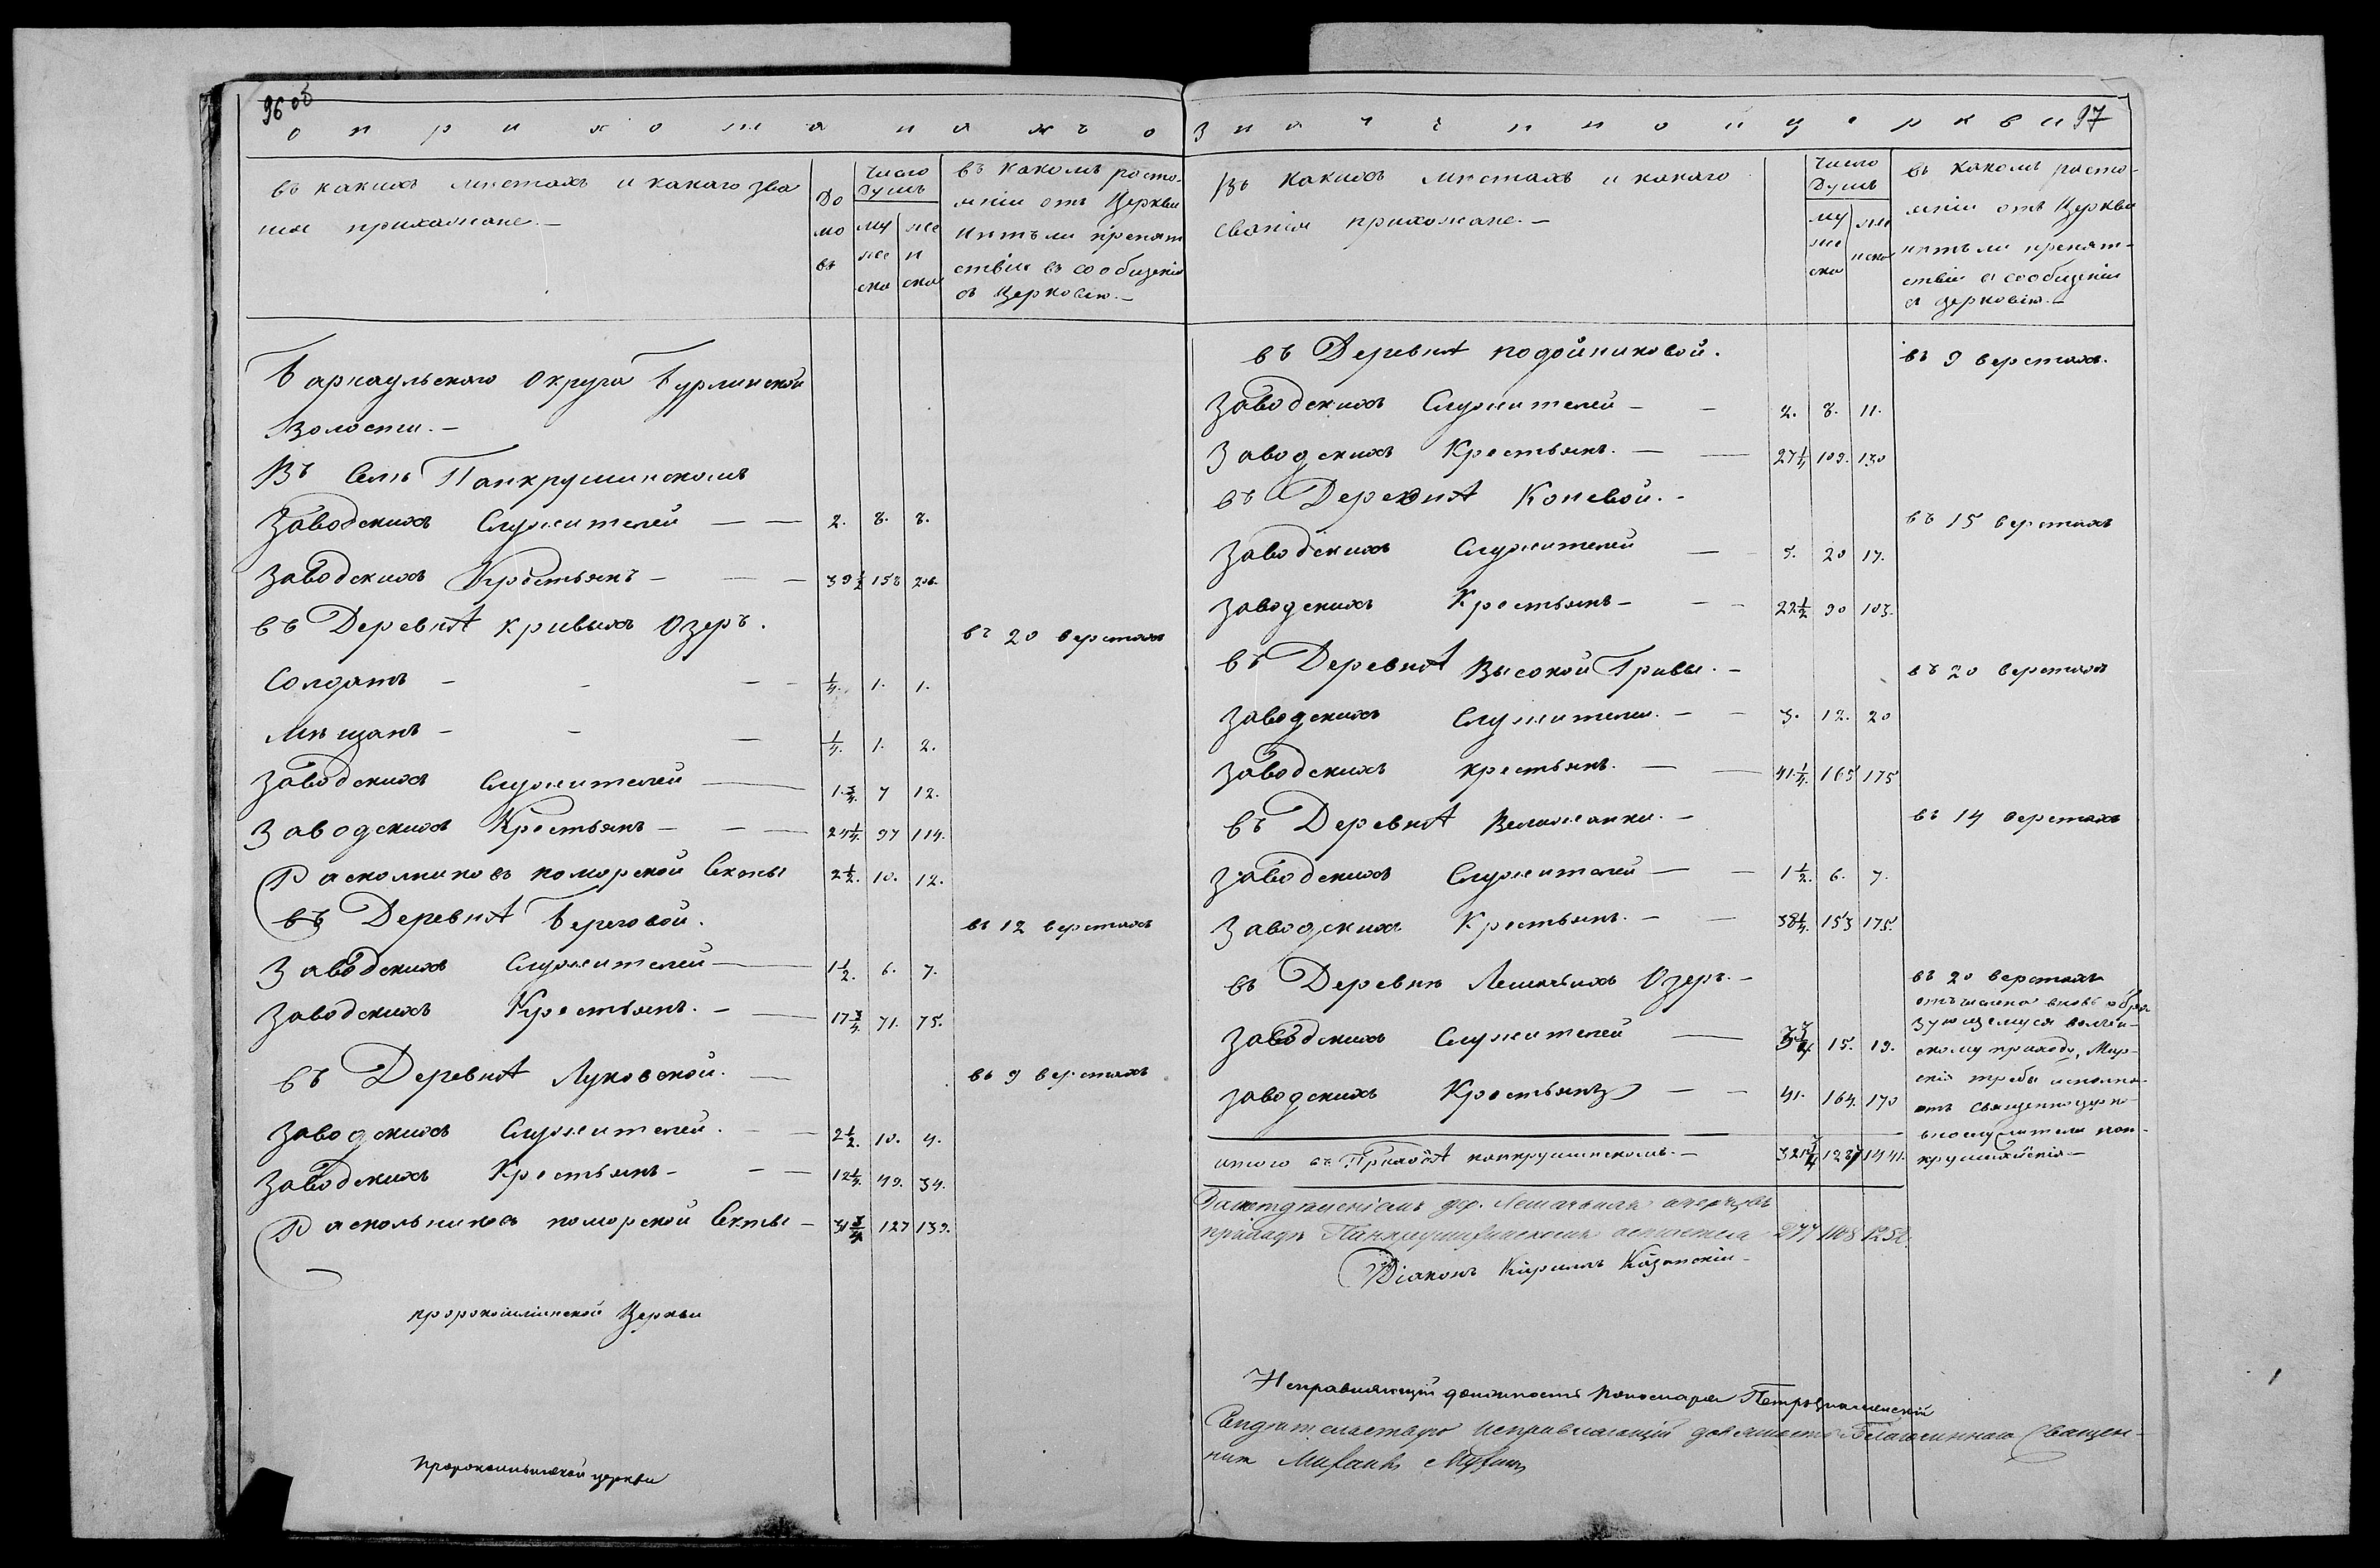 96 об
о прихожанахъ
въ какихъ мѣстахъ и какаго зва
нія прихожане.—
До
мо
въ
Число
душъ
му
же
ска
же
н
ска
въ какомъ росто-
яніи отъ Церкви
и нѣтъ ли препят
ствія въ сообщеніи
съ Церковію.—
Барнаульскаго Округа Бурлинской
Волости.—
Въ Селѣ Панкрушинскомъ
Заводскихъ Служителей — — 2. 8. 8.
Заводскихъ Крестьянъ — — — 39 1/2 158 206.
въ Деревнѣ кривыхъ Озеръ. въ 20 верстахъ
Солдатъ — - — — 1/4. 1. 1.
Мѣщанъ — - — 1/4. 1. 2.
Заводскихъ Служителей — 1. 3/4. 7 12.
Заводскихъ Крестьянъ — — — 24 1/4. 97 114.
Расколниковъ поморской Секты 2 1/2. 10. 12.
въ Деревнѣ Береговой. въ 12 верстахъ
Заводскихъ Служителей — 1 1/2. 6. 7.
Заводскихъ Крестьянъ. — — 17 3/4. 71. 75.
въ Деревнѣ Луковской. — въ 9 верстахъ
Заводскихъ Служителей. — — 2 1/2. 10. 4.
Заводскихъ Крестьянъ — — — 12 1/4. 49. 54.
Раскольниковъ поморской Секты — 31 3/4 127 139.
пророкоилинской Церкви
пророкоильинской церкви
97
значенной церкви
Въ какихъ мѣстахъ и какаго
званія прихожане.—
Число
Душъ
му
же
ска
же
нска
въ какомъ росто-
яніи отъ Церкви
и нѣтъ ли препят-
ствія въ сообщеніи
съ церковію.—
въ Деревнѣ подойниковой. въ 9 верстахъ.
Заводскихъ Служителей — — 2. 8. 11.
Заводскихъ Крестьянъ. — — 27 1/4 109. 130
въ Деревнѣ Коневой.— въ 15 верстахъ
Заводскихъ Служителей — 5. 20 17.
Заводскихъ Крестьянъ — — — 22 1/2 90 103.
въ Деревнѣ Высокой Гривы.— въ 20 верстахъ
Заводскихъ Служителей. — — 3. 12. 20
Заводскихъ крестьянъ. — — 41. 1/4. 165 175
въ Деревнѣ Велижанки.— въ 14 верстахъ
Заводскихъ Служителей — — 1 1/2. 6. 7.
Заводскихъ Крестьянъ. — — 38 1/4. 153 175.
въ Деревнѣ Лешачьихъ Озеръ.— въ 20 верстахъ
вновь обра
зующемуся
скому приходу, Мир-
Заводскихъ Служителей — 3 3/4 15. 19.
скія требы исполня-
Заводскихъ Крестьянъ — — 41. 164. 170
ютъ Священноцерко-
внослужители пан-
крушинскіе—
итого въ Приходѣ панкрушинскомъ.— 321 3/4 1287 1441.
дер. Лешачьихъ озеръ въ
приходѣ Панкрушинскомъ остается 277 1108 1252.
Діаконъ Кирилъ Казанскій—
Исправляющій должность Пономаря Петръ
Свидѣтельствую Исправляющій должность Благочиннаго Священ-
никъ